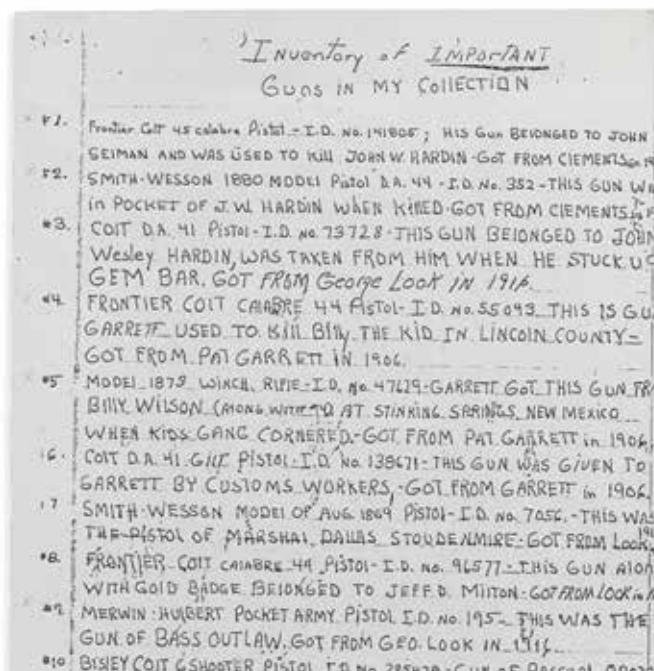 Inventory of IMPORTANT
GUNS IN MY COLLECTION
#1. Frontier Colt 45 calabre Pistol - I.D. No. 141805; HIS GUN BElONGED TO JOHN
SElMAN AND WAS USED TO Kill JOHN W. HARDIN - GoT FROM ClEMENTS in
#2. SMITH-WESSON 1880 MODEl Pistol D.A. 44 - I.D. No. 352 - THIS GUN
in POCKET OF J.W. HARDIN WHEN KIllED - GOT FROM ClEMENTS in
#3. COlT D.A. 41 Pistol - I.D. No. 73728 - THIS GUN BElONGED TO JOHN
Wesley HARDIN, WAS TAKEN FROM HIM WHEN HE STUCK UP
GEM BAR. GOT FROM George Look in 1916.
#4. FRONTIER COlT CAlABRE 44 PiSTOl - I.D. No. 55093 THIS IS GUN
GARRETT USED TO Kill Billy THE KiD IN LINCOlN COUNTY -
GOT FROM PAT GARRETT IN 1906.
#5 MODEl 1873 WINCH. RIFlE - I.D. No. 47629 - GARRETT GOT THIS GUN FR
BIlly WIlSON (AlONG WITH #4) AT STINKING SPRINGS, NEW MEXICO
WHEN KIDS GANG CORNERED. - GOT FROM PAT GARRETT in 1906.
#6. COlT D.A. 41. GIlT PiSTOl - I.D. No. 138671 - THIS GUN WAS GIVEN TO
GARRETT BY CUSTOMS WORKERS, - GOT FROM GARRETT in 1906.
#7 SMITH-WESSON MODEl OF AUG 1869 PiSTOl - I.D. No. 7056. - THIS WAS
THE PISTOl OF MARSHAl DAllAS STOUDENMIRE - GOT FROM Look
#8. FRONTIER COlT CAlABRE 44 PiSTOl - I.D. No. 96577 - THIS GUN AlON
WITH GOlD BADGE BElONGED TO JEFF D. MIlTON - GOT FROM LOOK in
#9 MERWIN-HUlBERT POCKET ARMY PISTOl I.D. No. 195 - THIS WAS THE
GUN OF BASS OUTlAW. GOT FROM GEO. LOOK IN 1916
#10 BISlEY COlT 6 SHOOTER PISTOl I.D. No.